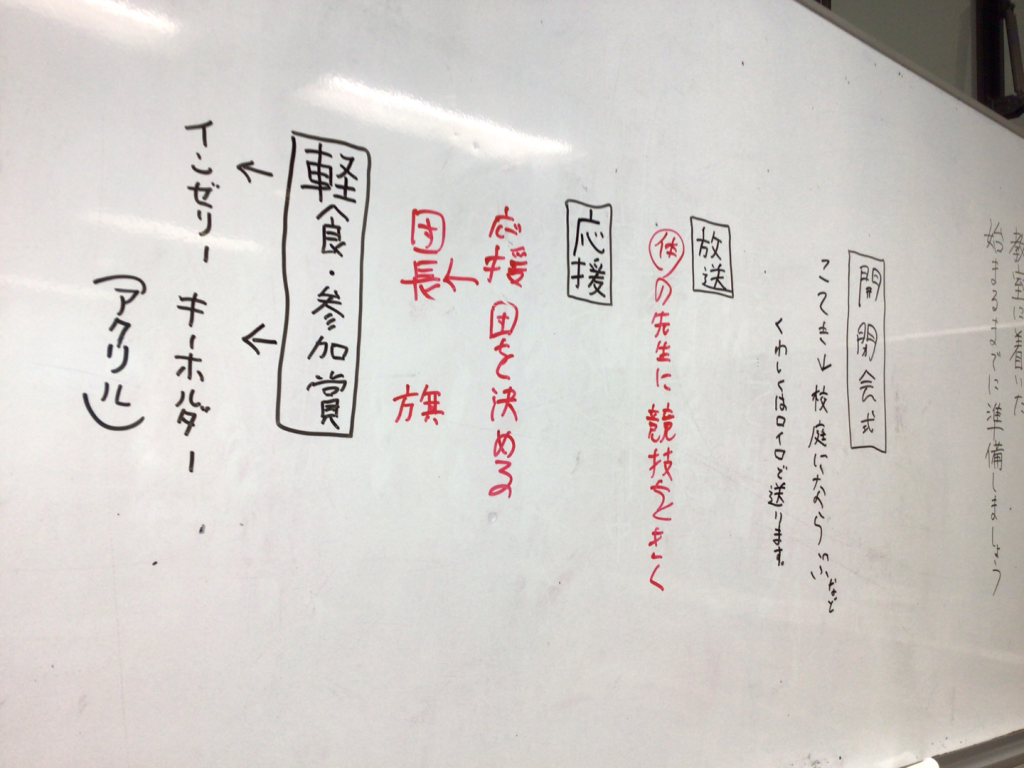 教室に着いた
始まるまでに準備しましょう
開閉会式
校庭にならぶ など
くわしくはロイロで送ります。
放送
体の先生に競技をきく
応援
応援団を決める
団長← 旗
軽食・参加賞
← ←
インゼリー キーホルダー
(アクリル)